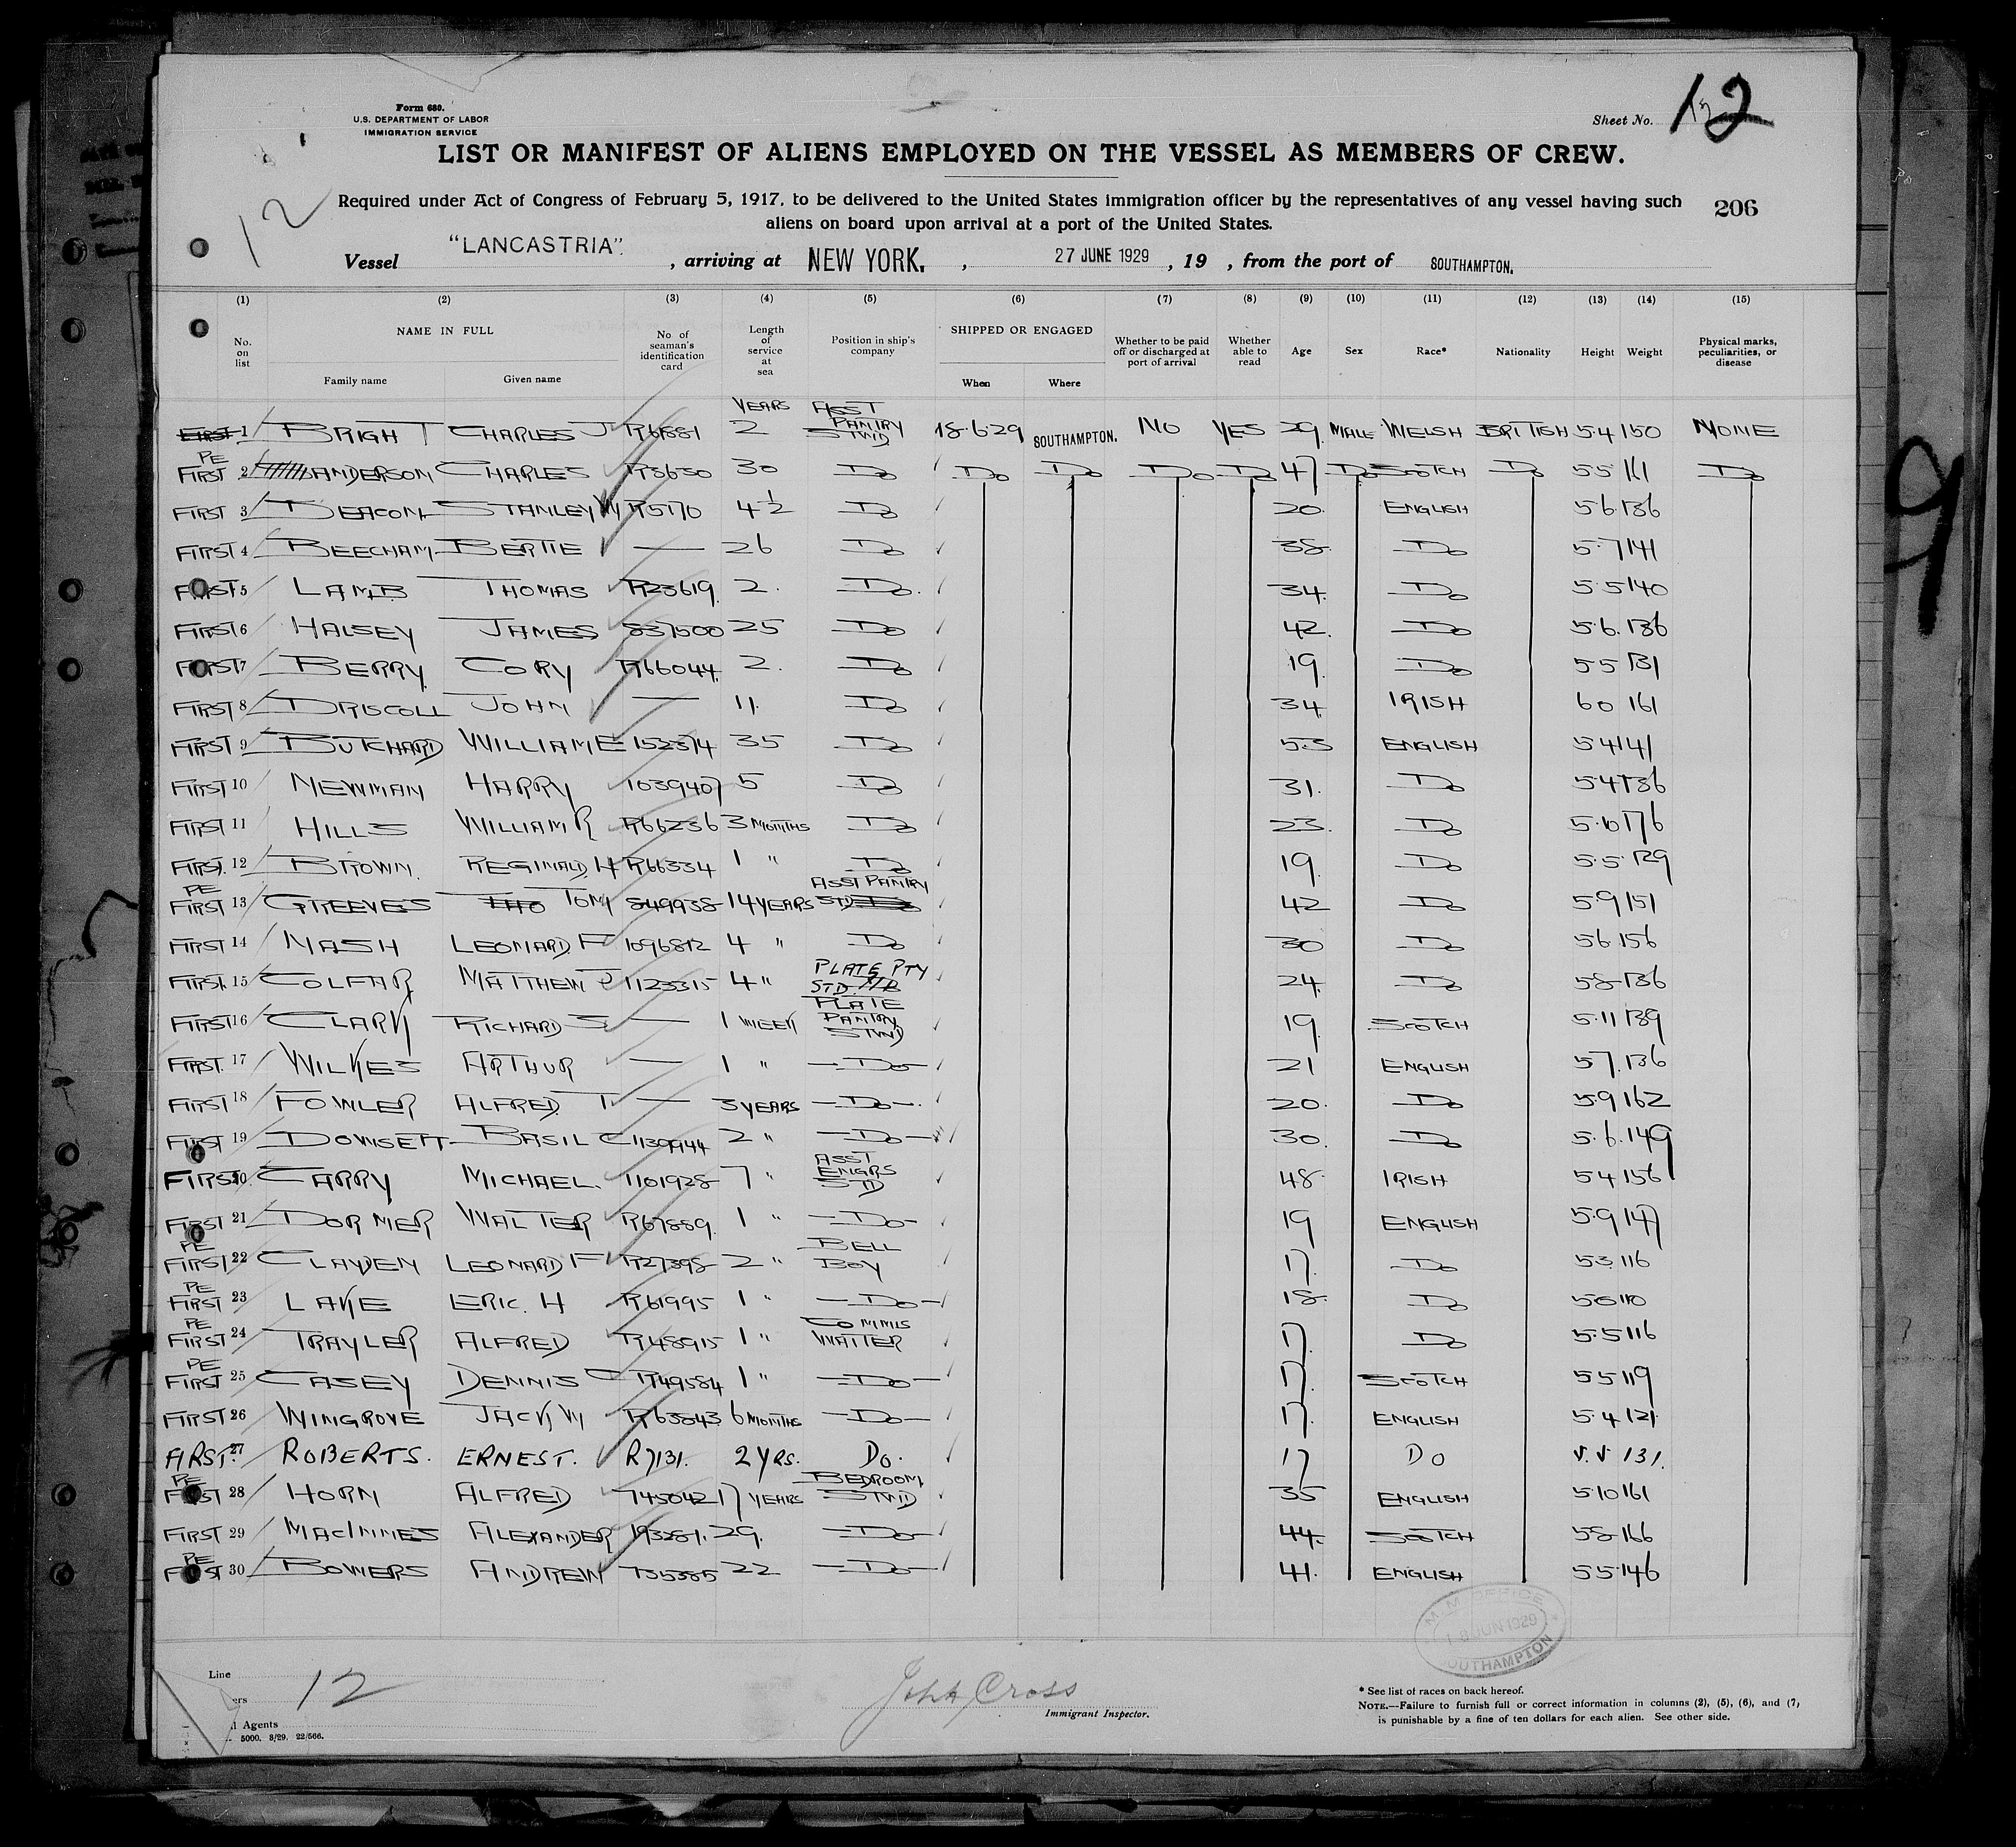 Form 680.
U.S. DEPARTMENT OF LABOR
IMMIGRATION SERVICE
Sheet No. 12
LIST OR MANIFEST OF ALIENS EMPLOYED ON THE VESSEL AS MEMBERS OF CREW.
12
Required under Act of Congress of February 5, 1917, to be delivered to the United States immigration officer by the representatives of any vessel having such
aliens on board upon arrival at a port of the United States.
206
Vessel "LANCASTRIA". , arriving at NEW YORK. , 27 JUNE 1929 , 19 , from the port of SOUTHAMPTON.
(1) (2) (3) (4) (5) (6) (7) (8) (9) (10) (11) (12) (13) (14) (15)
No. on list NAME IN FULL Family name Given name No. of seaman's identification card Length of service at sea Position in ship's company SHIPPED OR ENGAGED When Where Whether to be paid off or discharged at port of arrival Whether able to read Age Sex Race* Nationality Height Weight Physical marks, peculiarities, or disease
FIRST 1 BRIGHT CHARLES J R61881 2 YEARS ASST PANTRY STWD 18.6.29 SOUTHAMPTON. NO YES 29 MALE WELSH BRITISH 5.4 150 NONE
PE FIRST 2 ANDERSON CHARLES R3630 30 Do Do Do Do Do 47 Do SCOTCH Do 5.5 161 Do
FIRST 3 BEACON STANLEY W R5170 4½ Do 20 ENGLISH 5.6 136
FIRST 4 BEECHAM BERTIE — 26 Do 38 Do 5.7 141
FIRST 5 LAMB THOMAS R23619 2. Do. 34. Do 5.5 140
FIRST 6 HALSEY JAMES 837500 25 Do 42. Do 5.6. 136
FIRST 7 BERRY CORY R66044 2. Do 19. Do 5.5 131
FIRST 8 DRISCOLL JOHN — 11. Do 34 IRISH 6.0 161
FIRST 9 BUTCHARD WILLIAM E 152374 35 Do 53 ENGLISH 5.4 141
FIRST 10 NEWMAN HARRY 1039407 5 Do 31. Do 5.4 136
FIRST 11 HILLS WILLIAM R R66236 3 MONTHS Do 23. Do 5.10 176
FIRST. 12 BROWN. REGINALD. H R66334 1 " Do 19. Do 5.5. 129
PE FIRST 13 GREEVES TOM 849938 14 YEARS ASST PANTRY STD 42 Do 5.9 151
FIRST 14 NASH LEONARD. F 1096812 4 " Do 30 Do 5.6 156
FIRST. 15 COLFAR MATTHEW J 1123315 4 " PLATE PTY STD 24. Do 5.8 136
FIRST 16 CLARK RICHARD S — 1 WEEK PLATE PANTRY STWD 19. SCOTCH 5.11 139
FIRST. 17 WILKES ARTHUR — 1 " —Do— 21 ENGLISH 5.7. 136
FIRST 18 FOWLER ALFRED. T — 3 YEARS —Do—. 20. Do 5.9 162
FIRST 19 DOWSETT BASIL C 1139944 2 " —Do— 30. Do 5.6. 149
FIRST 20. CARRY MICHAEL. 1101928 7 " ASST ENGRS STD 48. IRISH 5.4 156
FIRST 21 DORMER WALTER R67889. 1 " —Do— 19 ENGLISH 5.9 147
PE FIRST 22 CLAYDEN LEONARD F R27398 2 " BELL BOY 17. Do 5.3 116
PE FIRST 23 LAKE ERIC. H R61995 1 " —Do— 18. Do 5.0 110
PE FIRST 24 TRAYLER ALFRED R48915 1 " COMMIS WAITER 17. Do 5.5 116
PE FIRST 25 CASEY DENNIS C R49584 1 " —Do— 17. SCOTCH 5.5 119
FIRST 26 WINGROVE JACK W R63843 6 MONTHS —Do— 17. ENGLISH 5.4 121.
FIRST. 27 ROBERTS. ERNEST. R7131. 2 YRS. Do. 17 DO 5.5 131.
PE FIRST 28 HORN ALFRED 745042 17 YEARS BEDROOM STWD 35 ENGLISH 5.10 161
FIRST 29 MACINNES ALEXANDER 193281. 29. —Do— 44. SCOTCH 5.8 166
PE FIRST 30 BOWERS ANDREW 735385 22 —Do— 41. ENGLISH 5.5 146
M.M. OFFICE
18 JUN 1929
SOUTHAMPTON
Line 12
ers
l Agents
5000. 3/29. 22/566.
John Cross
Immigrant Inspector.
* See list of races on back hereof.
NOTE.—Failure to furnish full or correct information in columns (2), (5), (6), and (7,
is punishable by a fine of ten dollars for each alien. See other side.
9